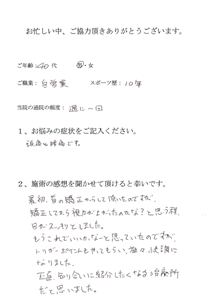 お忙しい中、ご協力頂きありがとうございます。
ご年齢 40代 男・女
ご職業: 自営業 スポーツ歴: 10年
当院の通院の頻度: 週に一回
1、お悩みの症状をご記入ください。
腰痛です。
2、施術の感想を聞かせて頂けると幸いです。
最初、首の矯正からして頂いたのですが、
矯正してから視力がよかったのかな？と思う程、
目がスッキリとしました。
もうこれでいいかな〜と思っていたのですが、
トリガーポイントもやってもらい、益々快調に
なりました。
正直、知り合いに紹介したくなる治療所
だと思いました。